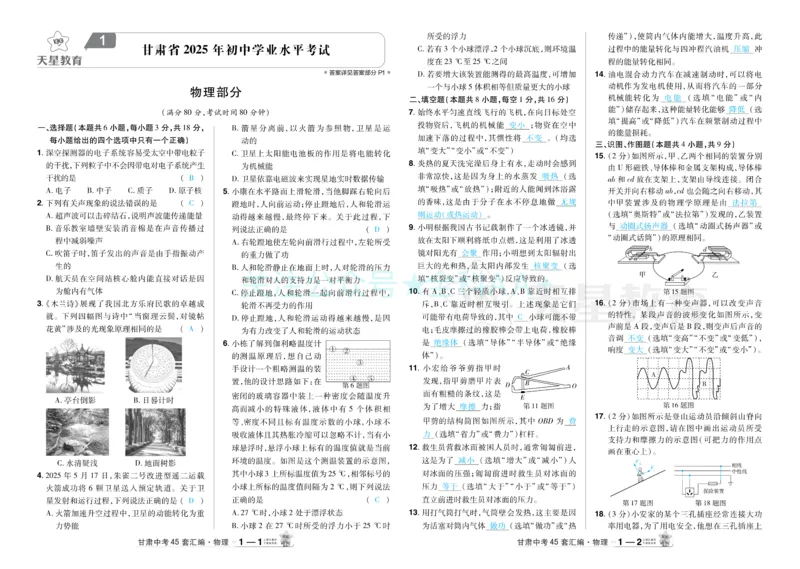 天星教育
1
甘肃省 2025 年初中学业水平考试
* 答案详见答案部分 P1 *
物理部分
(满分 80 分,考试时间 80 分钟)
一、选择题(本题共 6 小题,每小题 3 分,共 18 分,
每小题给出的四个选项中只有一个正确)
1. 深空探测器的电子系统容易受太空中带电粒子
的干扰,下列粒子中不会因带电对电子系统产生
干扰的是 ( B )
A. 电子 B. 中子 C. 质子 D. 原子核
2. 下列有关声现象的说法错误的是 ( C )
A. 超声波可以击碎结石,说明声波能传递能量
B. 音乐教室墙壁安装消音棉是在声音传播过
程中减弱噪声
C. 吹笛子时,笛子发出的声音是由手指振动产
生的
D. 航天员在空间站核心舱内能直接对话是因
为舱内有气体
3. 《木兰诗》展现了我国北方乐府民歌的卓越成
就。下列四幅图与诗中“当窗理云鬓,对镜帖
花黄”涉及的光现象原理相同的是 ( A )
A. 亭台倒影 B. 日晷计时
C. 水清疑浅 D. 地面树影
4. 2025 年 5 月 17 日,朱雀二号改进型遥二运载
火箭成功将 6 颗卫星送入预定轨道。关于卫
星发射和运行过程,下列说法正确的是 ( D )
A. 火箭加速升空过程中,卫星的动能转化为重
力势能
B. 箭星分离前,以火箭为参照物,卫星是运
动的
C. 卫星上太阳能电池板的作用是将电能转化
为机械能
D. 卫星依靠电磁波来实现星地实时数据传输
5. 小康在水平路面上滑轮滑,当他脚踩右轮向后
蹬地时,人向前运动;停止蹬地后,人和轮滑运
动得越来越慢,最终停下来。关于此过程,下
列说法正确的是 ( D )
A. 右轮蹬地使左轮向前滑行过程中,左轮所受
的重力做了功
B. 人和轮滑静止在地面上时,人对轮滑的压力
和轮滑对人的支持力是一对平衡力
C. 停止蹬地,人和轮滑一起向前滑行过程中,
轮滑不再受力的作用
D. 停止蹬地,人和轮滑运动得越来越慢,是因
为有力改变了人和轮滑的运动状态
6. 小栋了解到伽利略温度计
的测温原理后,想自己动
手设计一个粗略测温的装
置,他的设计思路如下:在
第 6 题图
密闭的玻璃容器中装上一种密度会随温度升
高而减小的特殊液体,液体中有 5 个体积相
等、密度不同且标有温度示数的小球,小球不
吸收液体且其热胀冷缩可以忽略不计,当有小
球悬浮时,悬浮小球上标有的温度值就是当前
环境的温度。如图是这个测温装置的示意图,
其中小球 3 上所标温度值为 25 ℃,相邻标号的
小球上所标的温度值间隔为 2 ℃,则下列说法
正确的是 ( C )
A. 27 ℃时,小球 2 处于漂浮状态
B. 小球 2 在 27 ℃时所受的浮力小于 25 ℃时
甘肃中考 45 套汇编·物理 1—1
所受的浮力
C. 若有 3 个小球漂浮,2 个小球沉底,则环境温
度在 23 ℃至 25 ℃之间
D. 若要增大该装置能测得的最高温度,可增加
一个与小球 5 体积相等但质量更大的小球
二、填空题(本题共 8 小题,每空 1 分,共 16 分)
7. 始终水平匀速直线飞行的飞机,在向目标处空
投物资后,飞机的机械能 变小 ;物资在空中
加速下落的过程中,其惯性将 不变 。(均选
填“变大”“变小”或“不变”)
8. 炎热的夏天洗完澡后身上有水,走动时会感到
非常凉快,这是因为身上的水蒸发 吸热 (选
填“吸热”或“放热”);附近的人能闻到沐浴露
的香味,这是由于分子在永不停息地做 无规
则运动(或热运动) 。
9. 小明根据我国古书记载制作了一个冰透镜,并
放在太阳下顺利将纸巾点燃,这是利用了冰透
镜对阳光有 会聚 作用;小明想到太阳辐射出
巨大的光和热,是太阳内部发生 核聚变 (选
填“核裂变”或“核聚变”)反应导致的。
10. 有 A、B、C 三个轻质小球,A、B 靠近时相互排
斥,B、C 靠近时相互吸引。上述现象是它们
可能带有电荷导致的,其中 C 小球可能不带
电;毛皮摩擦过的橡胶棒会带上电荷,橡胶棒
是 绝缘体 (选填“导体”“半导体”或“绝缘
体”)。
11. 小宏给爷爷剪指甲时
发现,指甲剪磨甲片表
面有粗糙的条纹,这是
为了增大 摩擦 力;指
第 11 题图
甲剪的结构简图如图所示,其中 OBD 为 费
力 (选填“省力”或“费力”)杠杆。
12. 救生员营救冰面被困人员时,通常匍匐前进,
这是为了 减小 (选填“增大”或“减小”)人
对冰面的压强;匍匐前进时救生员对冰面的
压力 等于 (选填“大于”“小于”或“等于”)
直立前进时救生员对冰面的压力。
13. 用打气筒打气时,气筒壁会发热,这主要是因
为活塞对筒内气体 做功 (选填“做功”或“热
传递”),使筒内气体内能增大,温度升高,此
过程中的能量转化与四冲程汽油机 压缩 冲
程的能量转化相同。
14. 油电混合动力汽车在减速制动时,可以将电
动机作为发电机使用,从而将汽车的一部分
机械能转化为 电能 (选填“电能”或“内
能”)储存起来,这种能量转化能够 降低 (选
填“提高”或“降低”)汽车在频繁制动过程中
的能量损耗。
三、识图、作图题(本题共 4 小题,共 9 分)
15. (2 分)如图所示,甲、乙两个相同的装置分别
由 U 形磁铁、导体棒和金属支架构成,导体棒
ab 和 cd 放在支架上,支架由导线连接。闭合
开关并向右移动 ab,cd 也会随之向右移动,其
中甲装置涉及的物理学原理是由 法拉第
(选填“奥斯特”或“法拉第”)发现的,乙装置
与 动圈式扬声器 (选填“动圈式扬声器”或
“动圈式话筒”)的原理相同。
甲 乙
第 15 题图
16. (2 分)市场上有一种变声器,可以改变声音
的特性。某段声音的波形变化如图所示,变
声前是 A 段,变声后是 B 段,则变声后声音的
音调 不变 (选填“变高”“不变”或“变低”),
响度 变大 (选填“变大”“不变”或“变小”)。
A B
第 16 题图
17. (2 分)如图所示是登山运动员沿倾斜山脊向
上行走的示意图,请在图中画出运动员所受
支持力和摩擦力的示意图(可把力的作用点
画在重心上)。
相线
中性线
保险装置
第 17 题图 第 18 题图
18. (3 分)小安家的某个三孔插座经常连接大功
率用电器,为了用电安全,他想在三孔插座上
甘肃中考 45 套汇编·物理 1—2